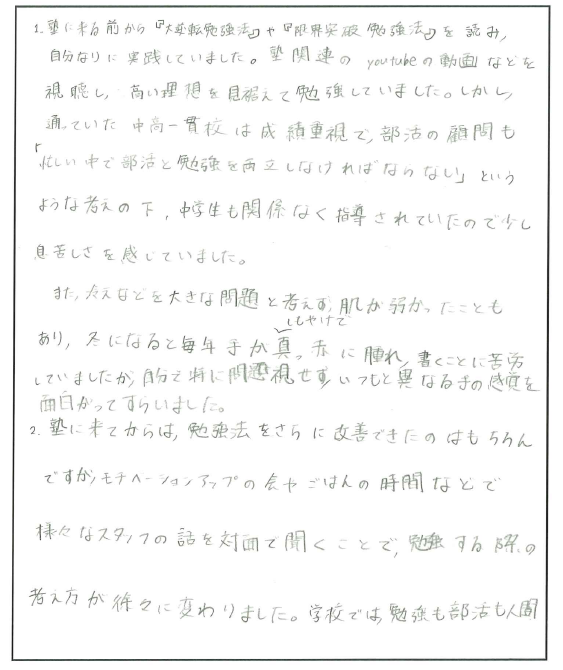 1. 塾に来る前から『大逆転勉強法』や『限界突破勉強法』を読み,
自分なりに実践していました。塾関連のyoutubeの動画などを
視聴し, 高い理想を見据えて勉強していました。しかし,
通っていた中高一貫校は成績重視で, 部活の顧問も
「忙しい中で部活と勉強を両立しなければならない」という
ような考えの下, 中学生も関係なく指導されていたので少し
息苦しさを感じていました。
また, 冷えなどを大きな問題と考えず, 肌が弱かったことも
あり, 冬になると毎年手がしもやけで真っ赤に腫れ, 書くことに苦労
していましたが, 自分で特に問題視せず, いつもと異なる手の感覚を
面白がってすらいました。
2. 塾に来てからは, 勉強法をさらに改善できたのはもちろん
ですが, モチベーションアップの会やごはんの時間などで
様々なスタッフの話を対面で聞くことで, 勉強する際の
考え方が徐々に変わりました。学校では, 勉強も部活も人間